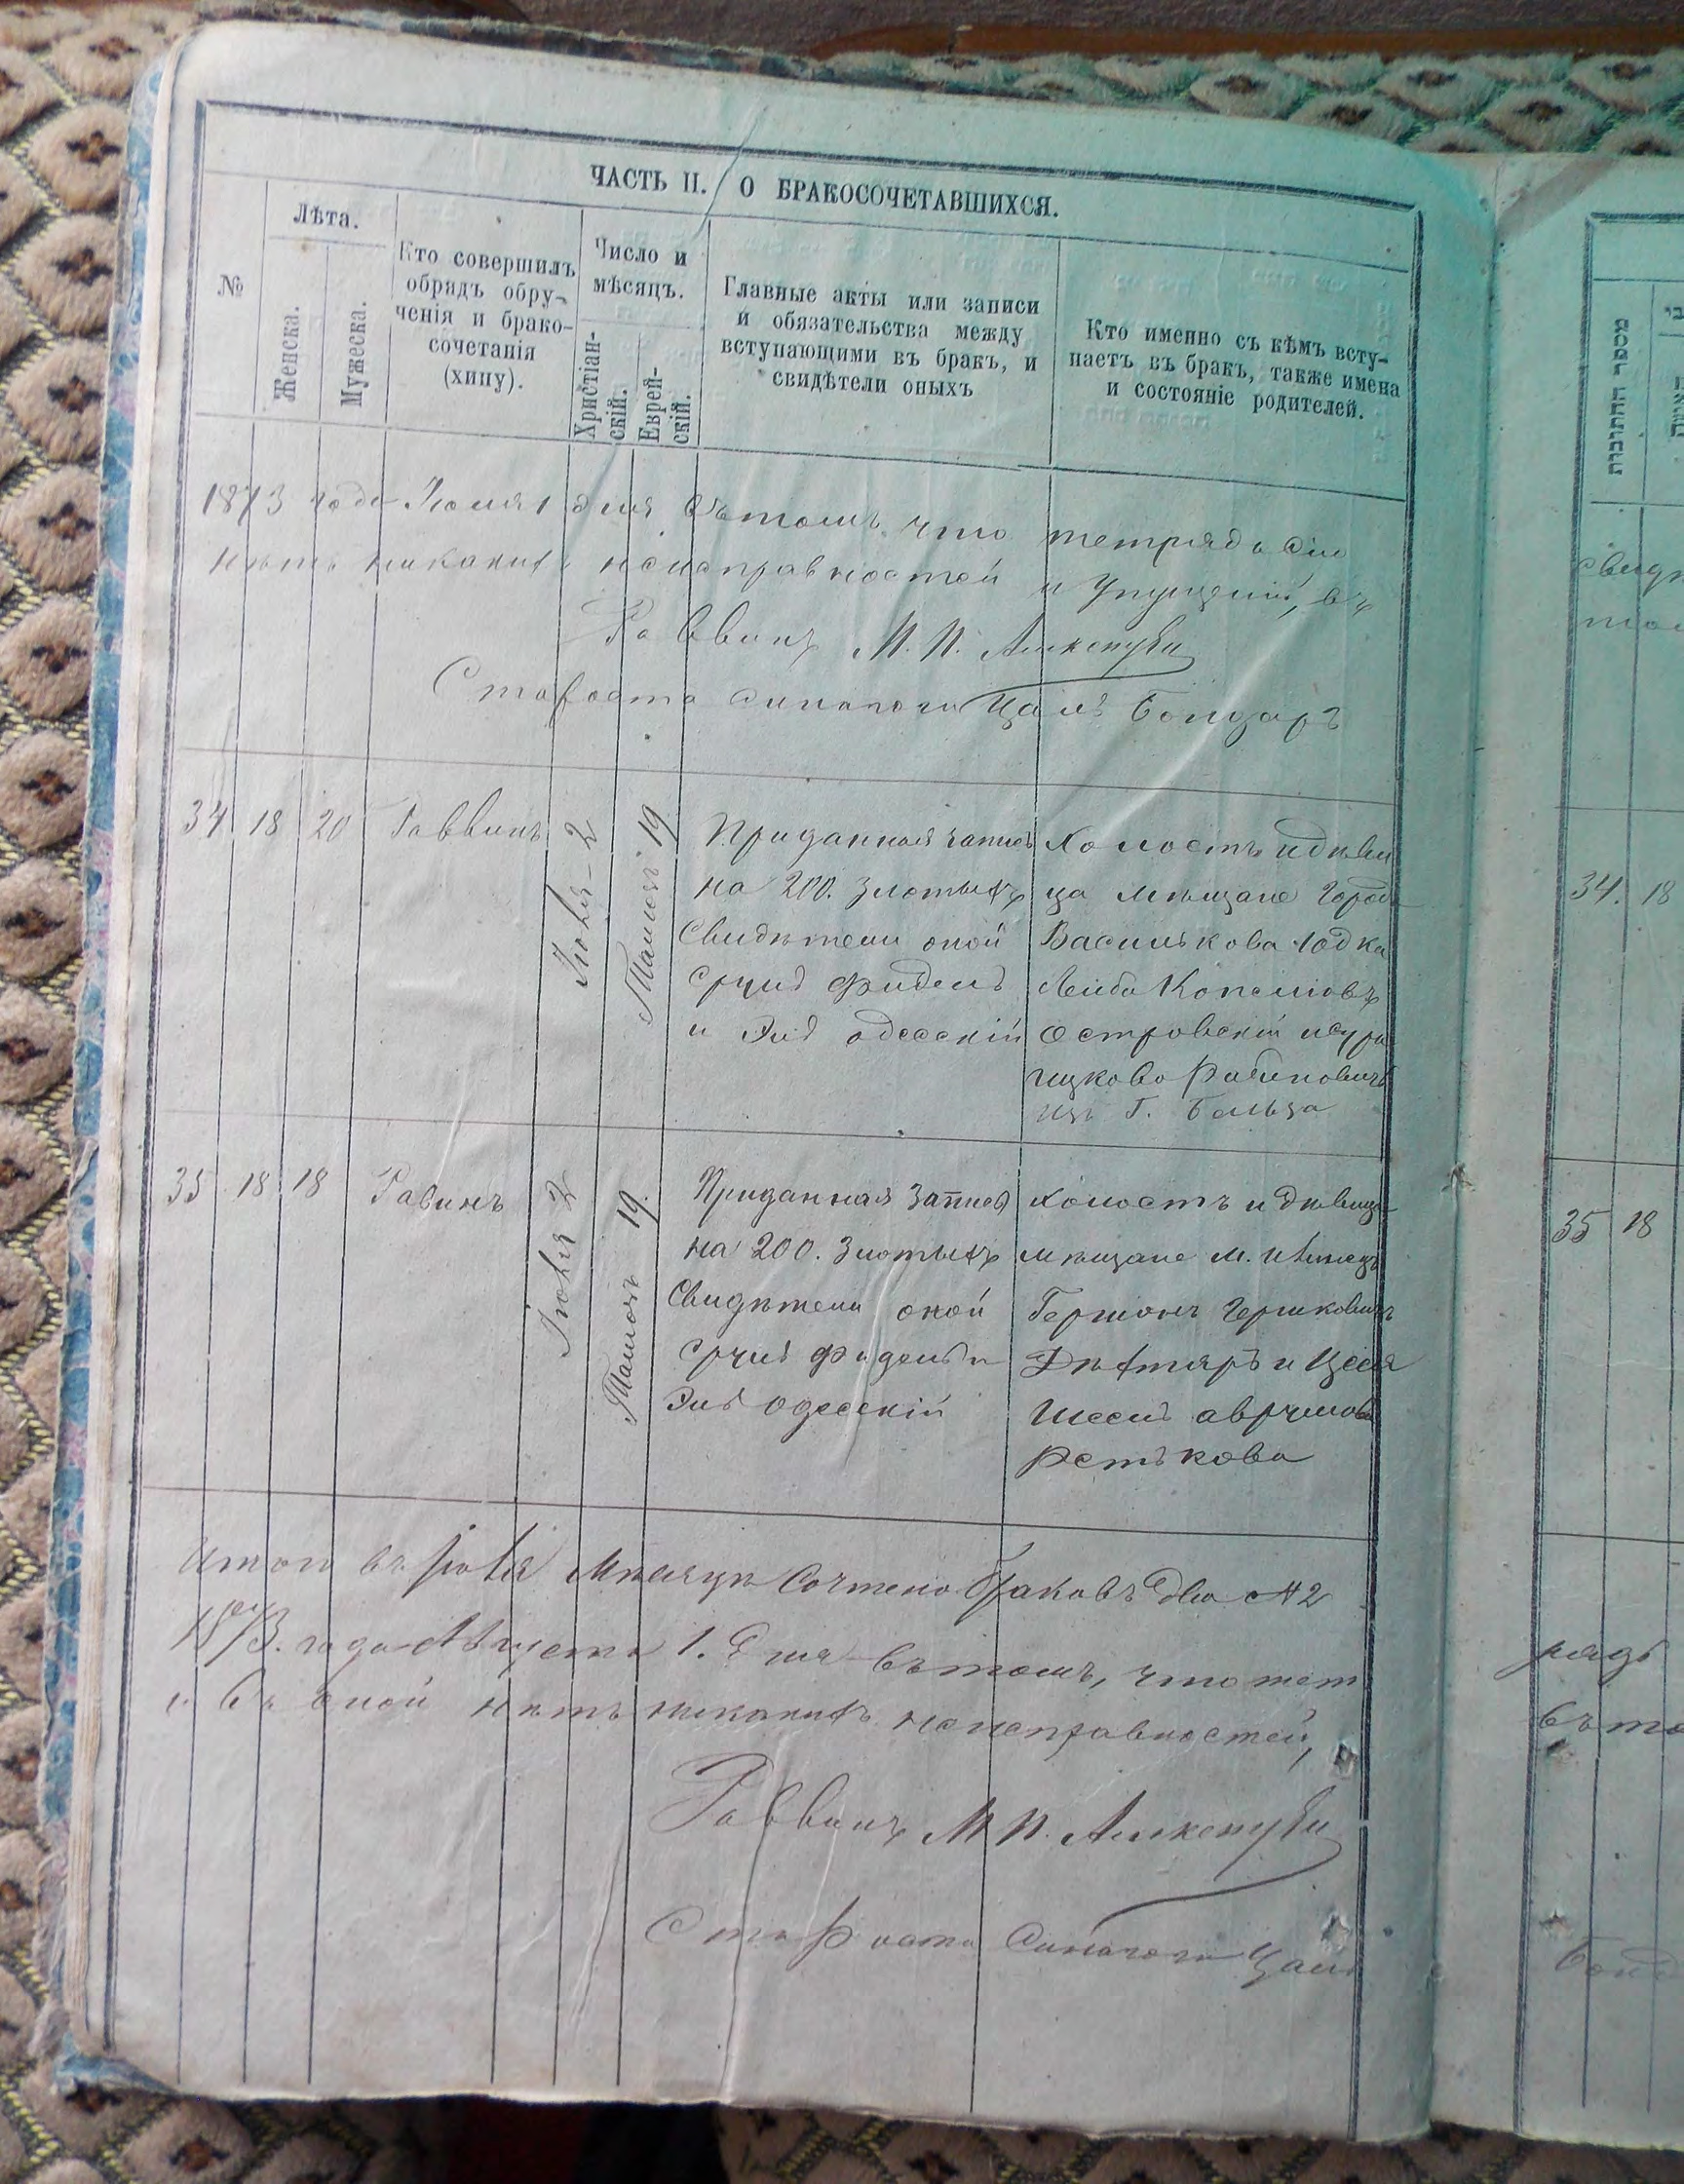 ЧАСТЬ II. О БРАКОСОЧЕТАВШИХСЯ.
№
Лѣта.
Женска.
Мужеска.
Кто совершилъ
обрядъ обру-
ченія и брако-
сочетанія
(хипу).
Число и
мѣсяцъ.
Христіан-
скій.
Еврей-
скій.
Главные акты или записи
и обязательства между
вступающими въ бракъ, и
свидѣтели оныхъ
Кто именно съ кѣмъ всту-
паетъ въ бракъ, также имена
и состояніе родителей.
1873 года Іюля 1 дня въ томъ что тетрядь сію
нѣтъ никакихъ неисправностей и упущеній, въ
Раввинъ М. П.
Староста синагоги Цаль Бондарь
34 18 20 Раввинъ
Іюля 2
Тамозъ 19
Приданная запись
на 200. злотыхъ
Свидѣтели оной
Сруль Фидель
и Эль одесскій
Холостъ и дѣви
ца мѣщане Города
Василькова Юдка
Лейба Копелювъ
Островскій и Сура
Ицкова Рабиновичъ
изъ Г. Бельза
35 18 18 Равинъ
Іюля 2
Тамозъ 19.
Приданная Запись
на 200. Злотыхъ
Свидѣтели оной
Сруль Фидель и
Эль Одесскій
холостъ и дѣвица
мѣщане м.
Гершонъ Гершковичъ
Дѣхтяръ и Цеся
Шесль аврумова
Ретькова
Итого въ Іюля Мѣсяцѣ Сочтено браковъ два №2
1873. года Августа 1. Дня въ томъ, что тет
и въ оной нѣтъ никакихъ неисправностей,
Раввинъ М П.
Староста Синагоги Цаль
מספר החתונות
34. 18
35 18
рядь
въ то
Бонд